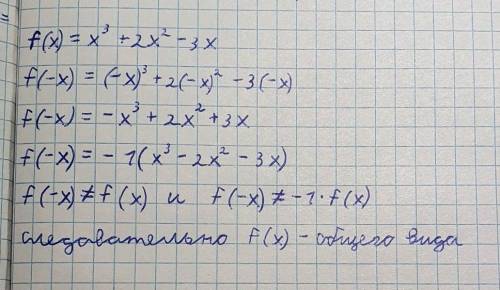 f(x) = x³ + 2x² - 3x
f(-x) = (-x)³ + 2(-x)² - 3(-x)
f(-x) = -x³ + 2x² + 3x
f(-x) = -1(x³ - 2x² - 3x)
f(-x) ≠ f(x) и f(-x) ≠ -1·f(x)
следовательно f(x) - общего вида